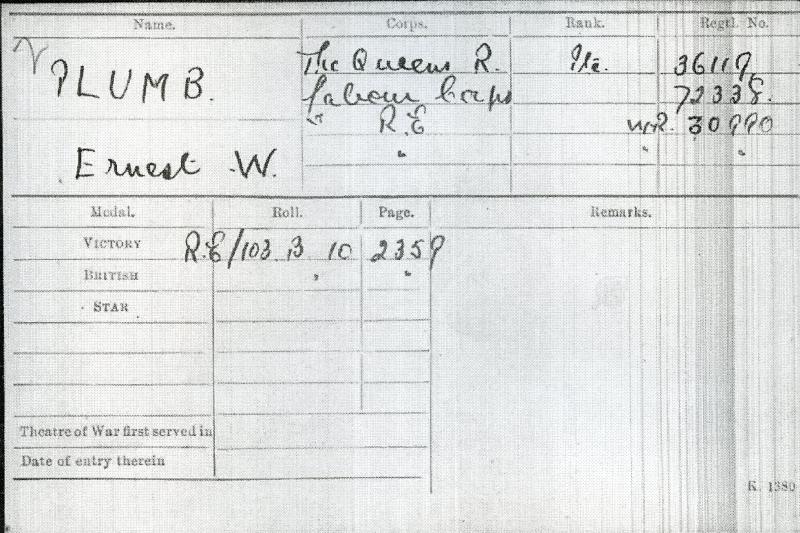 Name. Corps. Rank. Regtl. No.
PLUMB. The Queens R. Pte. 36119
Labour Corps 72338.
R.E WR. 309990
Ernest W. " " "
Medal. Roll. Page. Remarks.
VICTORY R.E/103 B 10 2359
BRITISH " "
STAR
Theatre of War first served in
Date of entry therein
K. 1380